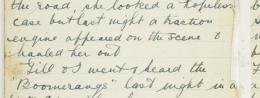 the road, she looked a hopeless
case but last night a traction
engine appeared on the scene &
hauled her out.
Gill & I went & heard the
"Boomerangs" last night in a